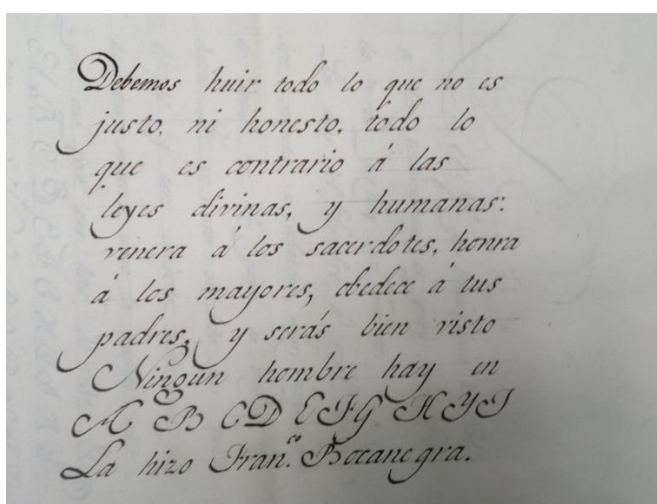 Debemos huir todo lo que no es
justo, ni honesto, todo lo
que es contrario á las
leyes divinas, y humanas:
venera á los sacerdotes, honra
á los mayores, obedece á tus
padres, y serás bien visto
Ningun hombre hay en
A B C D E F G H Y J
La hizo Fran.co Bocanegra.